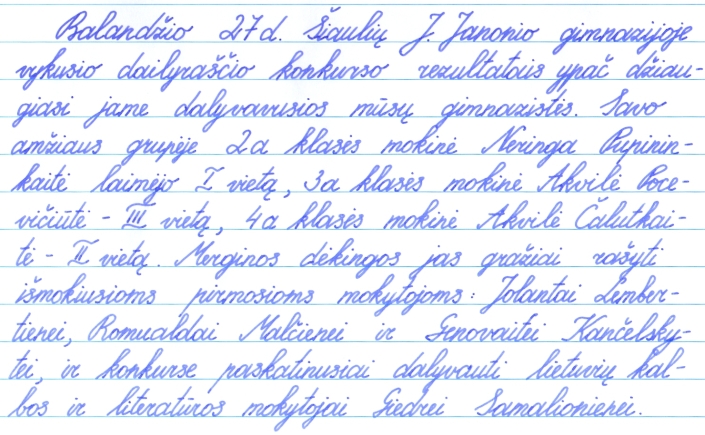 Balandžio 27 d. Šiaulių J. Janonio gimnazijoje
vykusio dailyraščio konkurso rezultatais ypač džiau-
giasi jame dalyvavusios mūsų gimnazistės. Savo
amžiaus grupėje 2a klasės mokinė Neringa Pupinin-
kaitė laimėjo I vietą, 3a klasės mokinė Akvilė Poce-
vičiūtė - III vietą, 4a klasės mokinė Akvilė Čalutkai-
tė - II vietą. Merginos dėkingos jas gražiai rašyti
išmokiusioms pirmosioms mokytojoms: Jolantai Lember-
tienei, Romualdai Malčienei ir Genovaitei Kančelsky-
tei, ir konkurse paskatinusiai dalyvauti lietuvių kal-
bos ir literatūros mokytojai Giedrei Samalionienei.